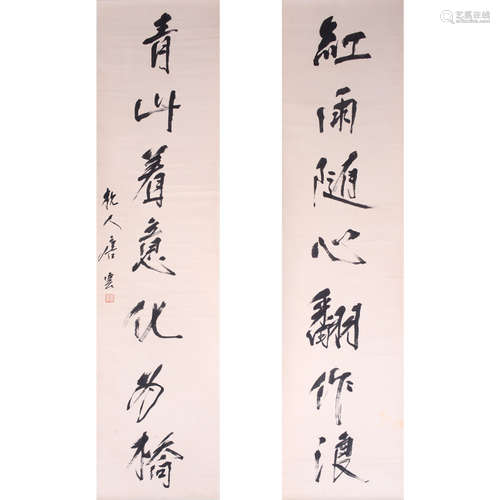 紅雨隨心翻作浪
青山着意化為橋
杭人唐雲